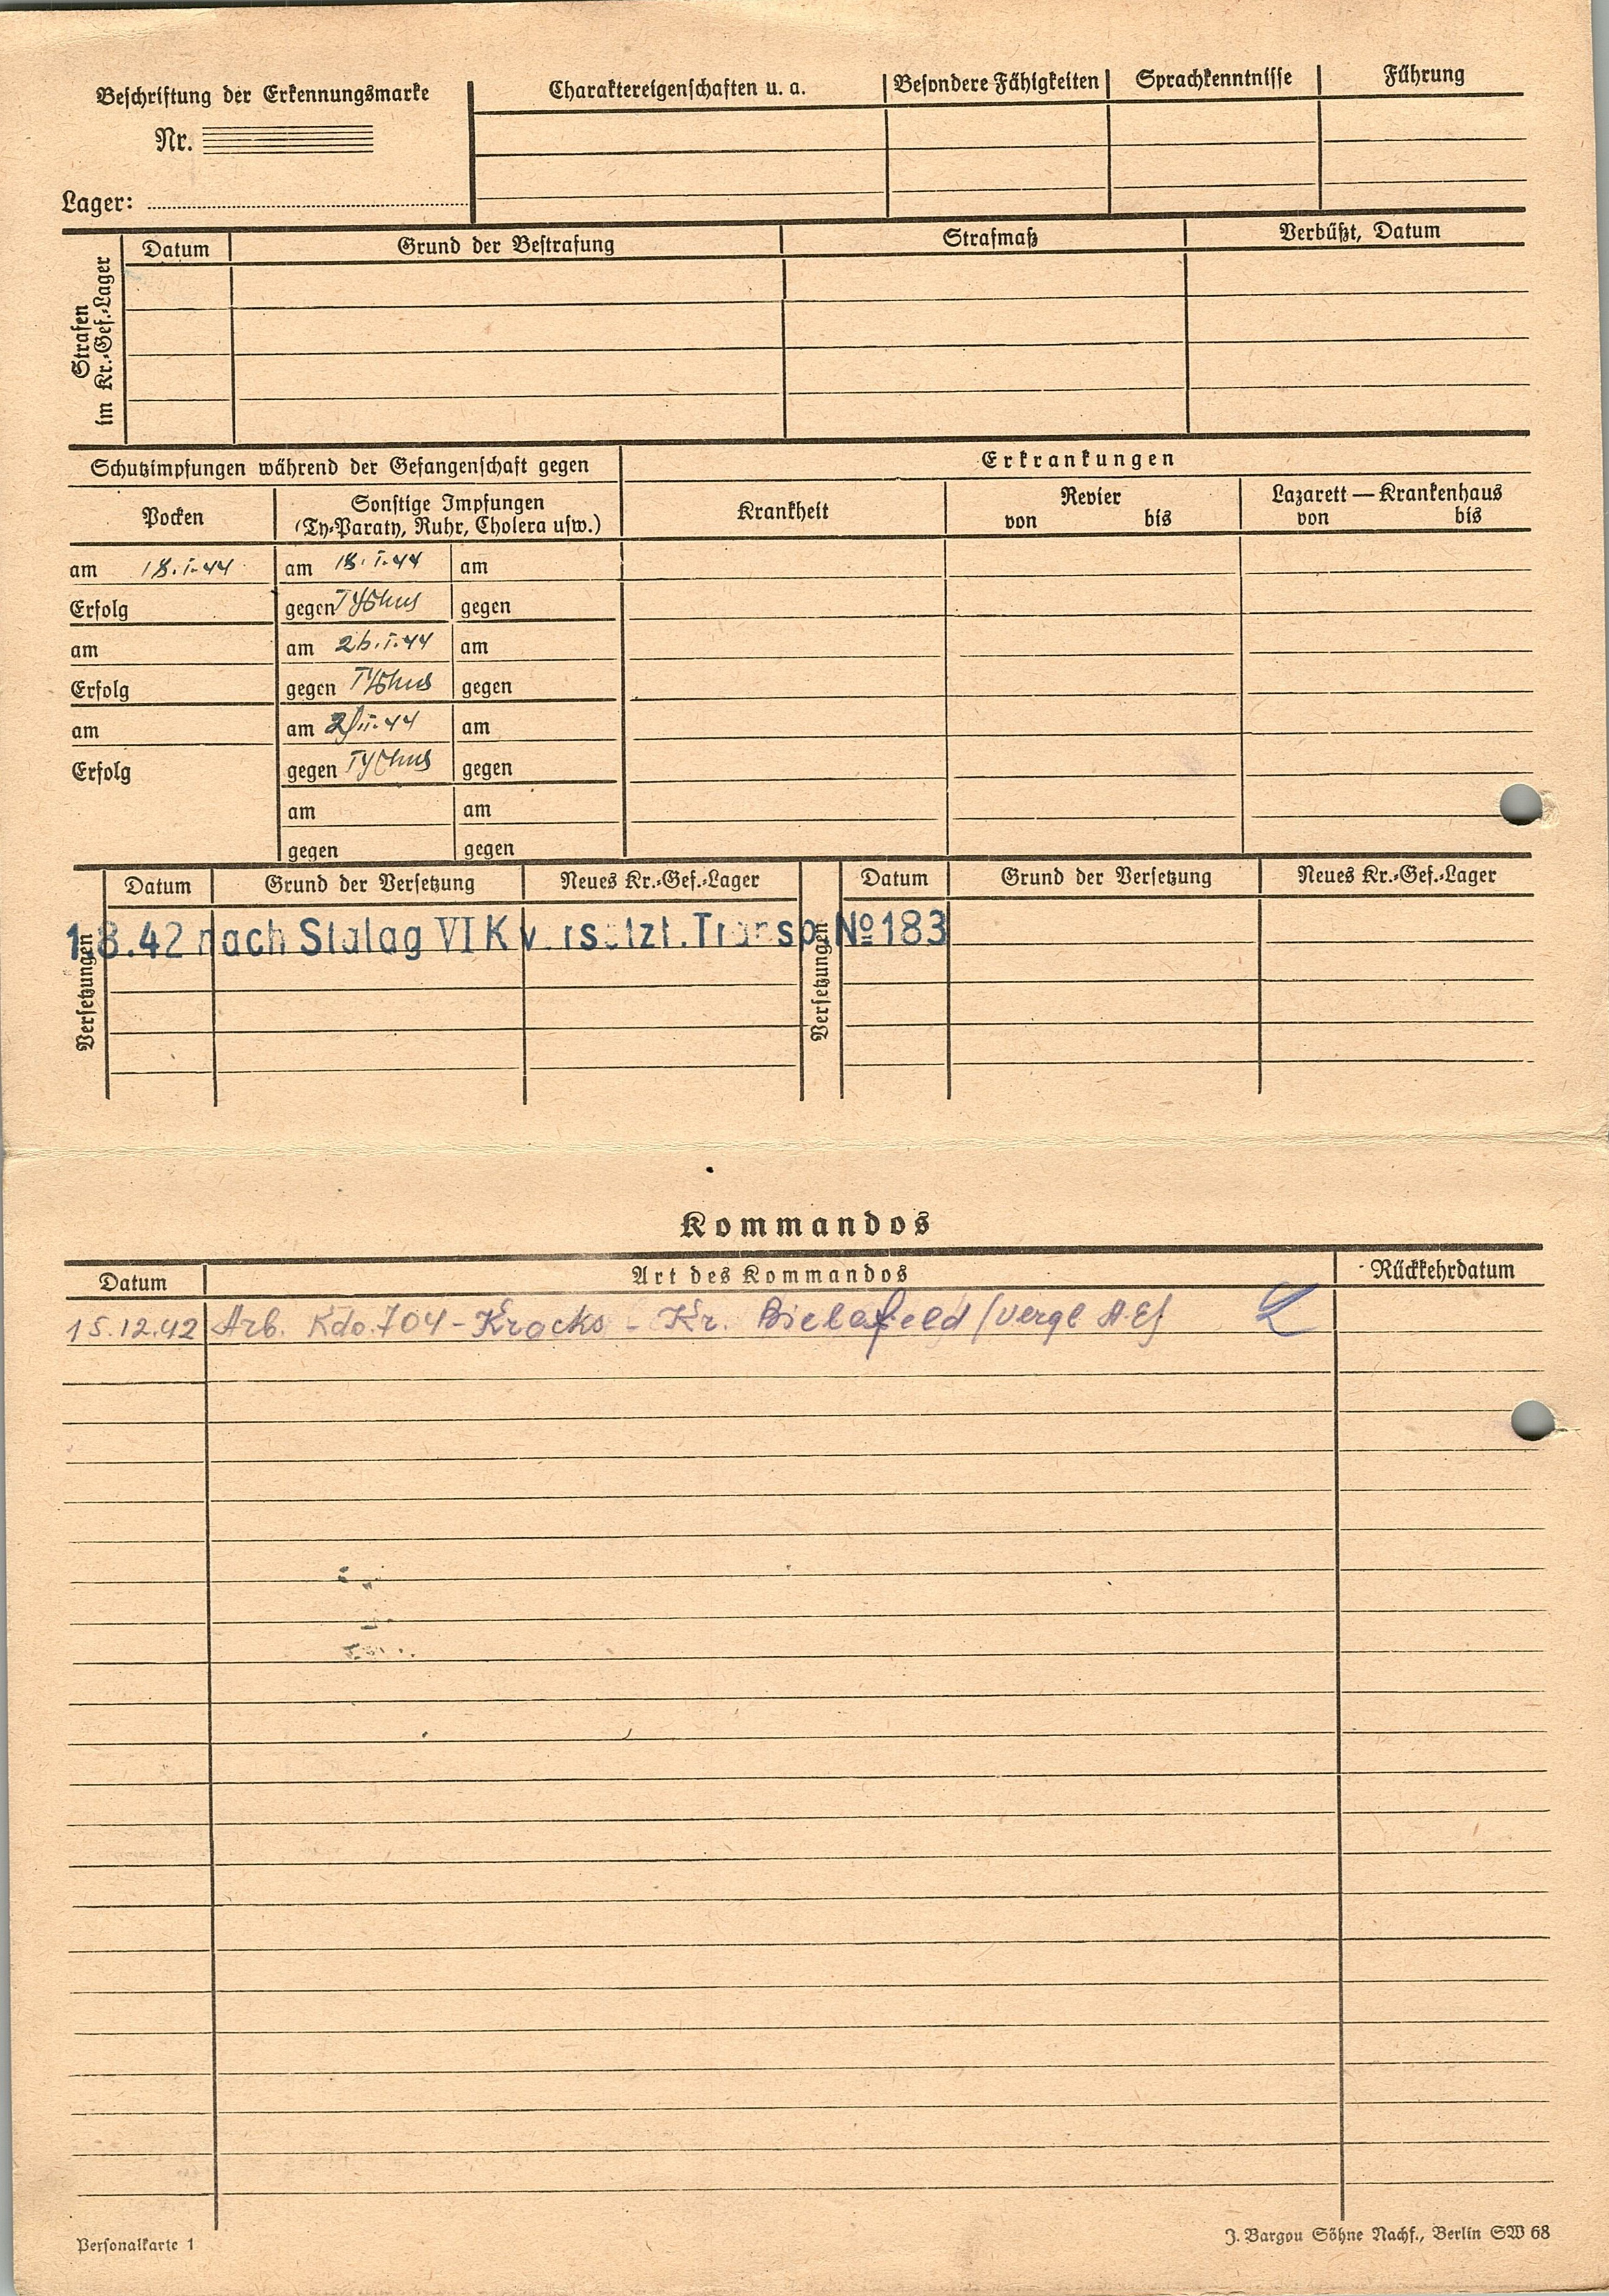 Beschriftung der Erkennungsmarke
Nr.
Lager:
Charaktereigenschaften u. a.
Besondere Fähigkeiten
Sprachkenntnisse
Führung
Strafen
im Kr.-Gef.-Lager
Datum
Grund der Bestrafung
Strafmaß
Verbüßt, Datum
Schutzimpfungen während der Gefangenschaft gegen
Erkrankungen
Pocken
Sonstige Impfungen
(Ty-Paraty, Ruhr, Cholera usw.)
Krankheit
Revier
von bis
Lazarett — Krankenhaus
von bis
am 18.I.44 am 18.I.44 am
Erfolg gegen Typhus gegen
am am 26.I.44 am
Erfolg gegen Typhus gegen
am am 2.II.44 am
Erfolg gegen Typhus gegen
am am
gegen gegen
Versetzungen
Datum Grund der Versetzung Neues Kr.-Gef.-Lager
Versetzungen
Datum Grund der Versetzung Neues Kr.-Gef.-Lager
1.8.42 nach Stalag VI K versetzt. Transp. No 183
Kommandos
Datum Art des Kommandos Rückkehrdatum
15.12.42 Arb. Kdo. 704 - Kracks - Kr. Bielefeld / vergl
Personalkarte 1
J. Bargou Söhne Nachf., Berlin SW 68